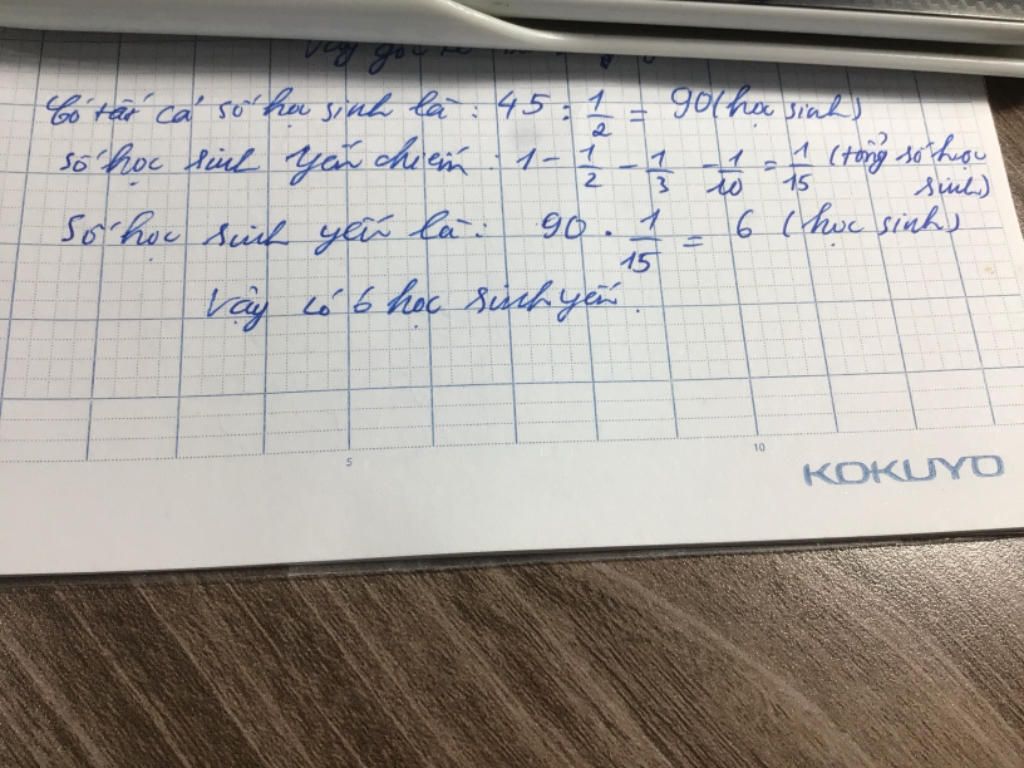 Có tất cả số học sinh là : 45 : 1/2 = 90 (học sinh)
số học sinh yếu chiếm : 1 - 1/2 - 1/3 - 1/10 = 1/15 (tổng số học
sinh)
Số học sinh yếu là : 90 . 1/15 = 6 (học sinh)
Vậy có 6 học sinh yếu.
5
10
KOKUYO